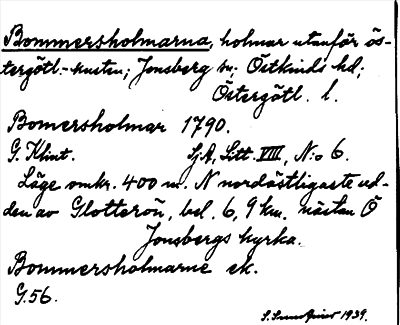 Bommersholmarna, holmar utanför ös-
tergötl.-kusten; Jonsberg sn; Östkinds hd;
Östergötl. l.
Bomersholmar 1790.
G. Klint. SjA, Litt. VIII, N:o 6.
Läge omkr. 400 m. N nordöstligaste ud-
den av Glotterön, bel. 6,9 km. nästan Ö
Jonsbergs kyrka.
Bommersholmarne ek.
G.56.
1939.